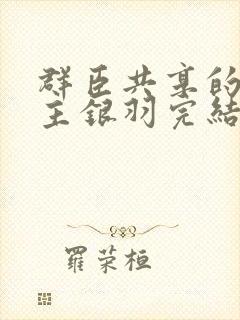 群臣共享的
主銀羽完結
羅荣桓